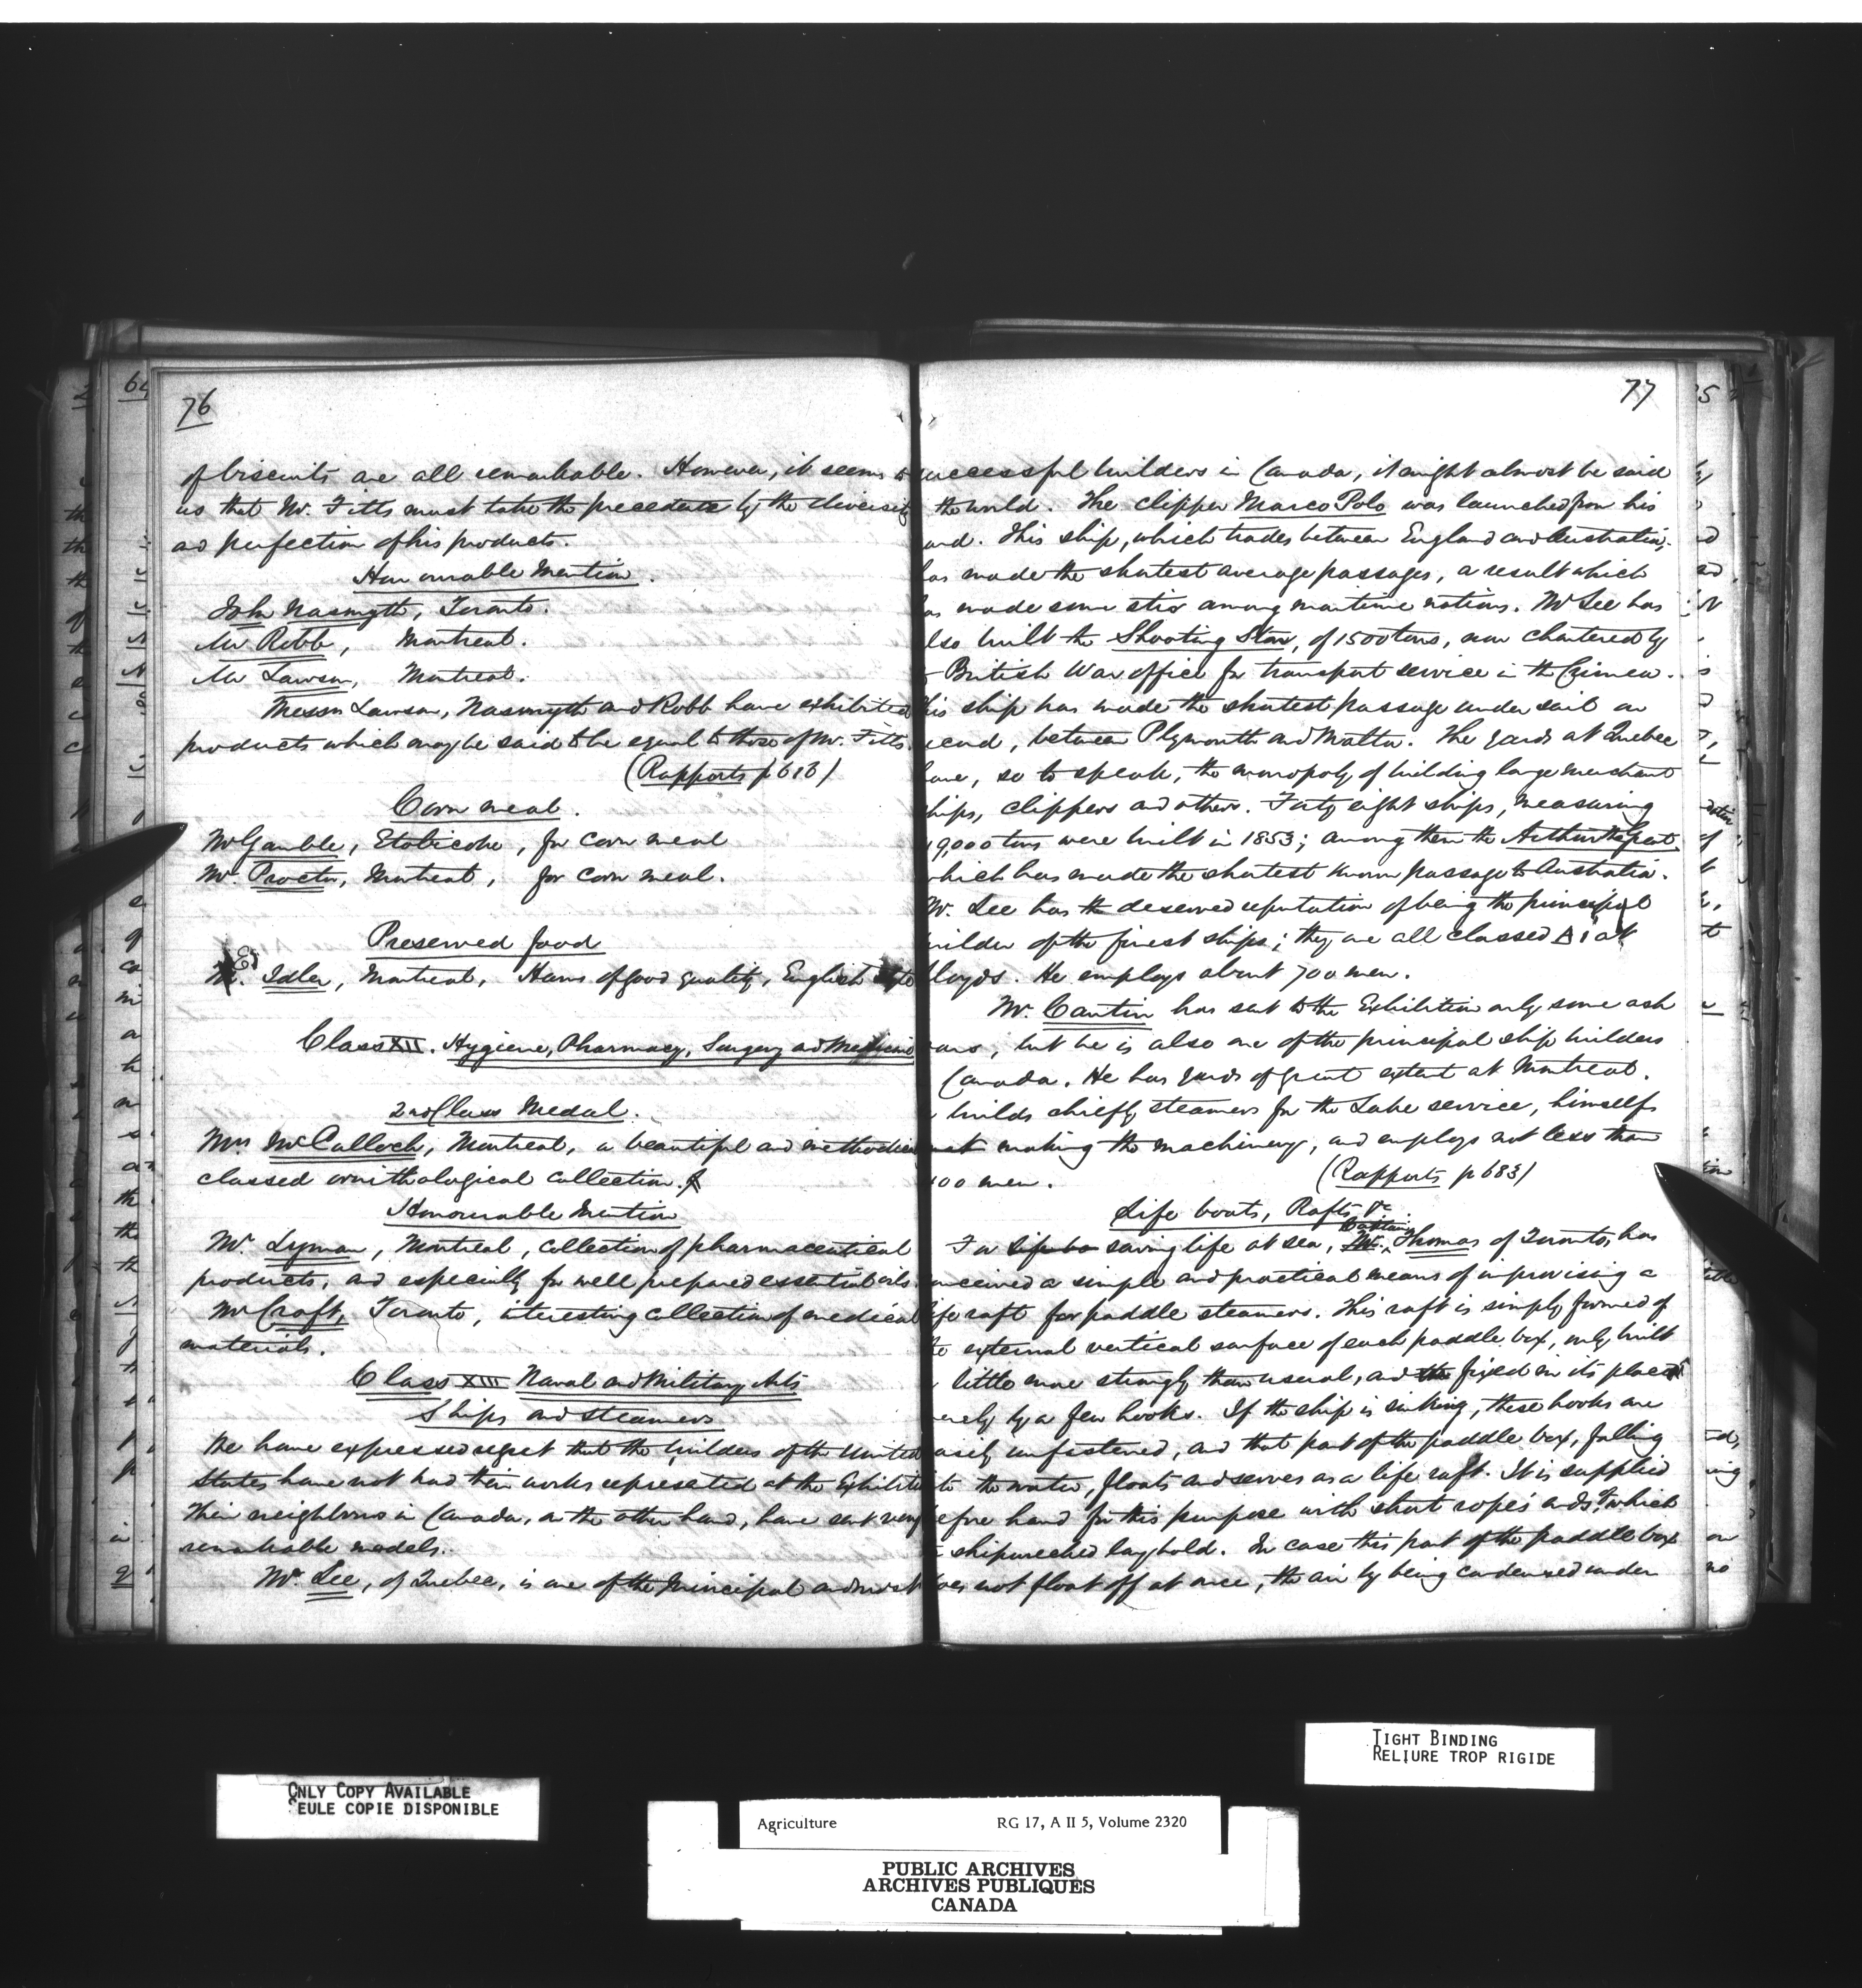 76
of biscuits are all remarkable. However, it seems to
us that Mr. Fitts must take the precedence by the diversity
and perfection of his products.
Honourable Mention.
John Nasmyth, Toronto.
Mr Robb, Montreal.
Mr Lawson, Montreal.
Messrs Lawson, Nasmyth and Robb have exhibited
products which may be said to be equal to those of Mr. Fitts.
(Rapports p 613)
Corn meal.
Mr Gamble, Etobicoke, for corn meal
Mr. Proctor, Montreal, for corn meal.
Preserved food
E. Idler, Montreal, Hams of good quality, English
Class XII. Hygiene, Pharmacy, Surgery and Medicine
2nd Class Medal.
Mrs McCulloch, Montreal, a beautiful and methodical
classed ornithological collection.
Honourable Mention
Mr. Lyman, Montreal, collection of pharmaceutical
products, and especially for well prepared essential oils.
Mr Croft, Toronto, interesting collection of medical
materials.
Class XIII Naval and Military Arts
Ships and steamers
We have expressed regret that the builders of the United
States have not had their works represented at the Exhibiti
Their neighbours in Canada, on the other hand, have sent very
remarkable models.
Mr. Lee, of Quebec, is one of the Principal and most
77
uccessful builders in Canada, it might almost be said
the world. The clipper Marco Polo was launched from his
ard. This ship, which trades between England and Australia,
has made the shortest average passages, a result which
as made some stir among maritime nations. Mr Lee has
lso built the Shooting Star, of 1500 tons, now chartered by
British War office for transport service in the Crimea.
his ship has made the shortest passage under sail on
record, between Plymouth and Malta. The yards at Quebec
have, so to speak, the monopoly of building large merchant
hips, clippers and others. Forty eight ships, measuring
9,000 tons were built in 1853; among them the Arthur the Great
which has made the shortest known passage to Australia.
Mr. Lee has the deserved reputation of being the principal
uilder of the finest ships; they are all classed A 1 at
lloyds. He employs about 700 men.
Mr. Cantin has sent to the Exhibition only some ash
oars, but he is also one of the principal ship builders
Canada. He has yards of great extent at Montreal.
builds chiefly steamers for the Lake service, himself
not making the machinery, and employs not less than
00 men.
(Rapports p 683)
Life boats, Rafts, &c
For life bo saving life at sea, Mr. Captain Thomas of Toronto, has
onceived a simple and practical means of improvising a
ife raft for paddle steamers. This raft is simply formed of
the external vertical surface of each paddle box, only built
little more strongly than usual, and the fixed in its place
erely by a few hooks. If the ship is sinking, these hooks are
asily unfastened, and that part of the paddle box, falling
to the water, floats and serves as a life raft. It is supplied
before hand for this purpose with short ropes ends, to which
shipwrecked lay hold. In case this part of the paddle box
oes not float off at once, the air by being condensed under
ONLY COPY AVAILABLE
SEULE COPIE DISPONIBLE
TIGHT BINDING
RELIURE TROP RIGIDE
Agriculture RG 17, A II 5, Volume 2320
PUBLIC ARCHIVES
ARCHIVES PUBLIQUES
CANADA